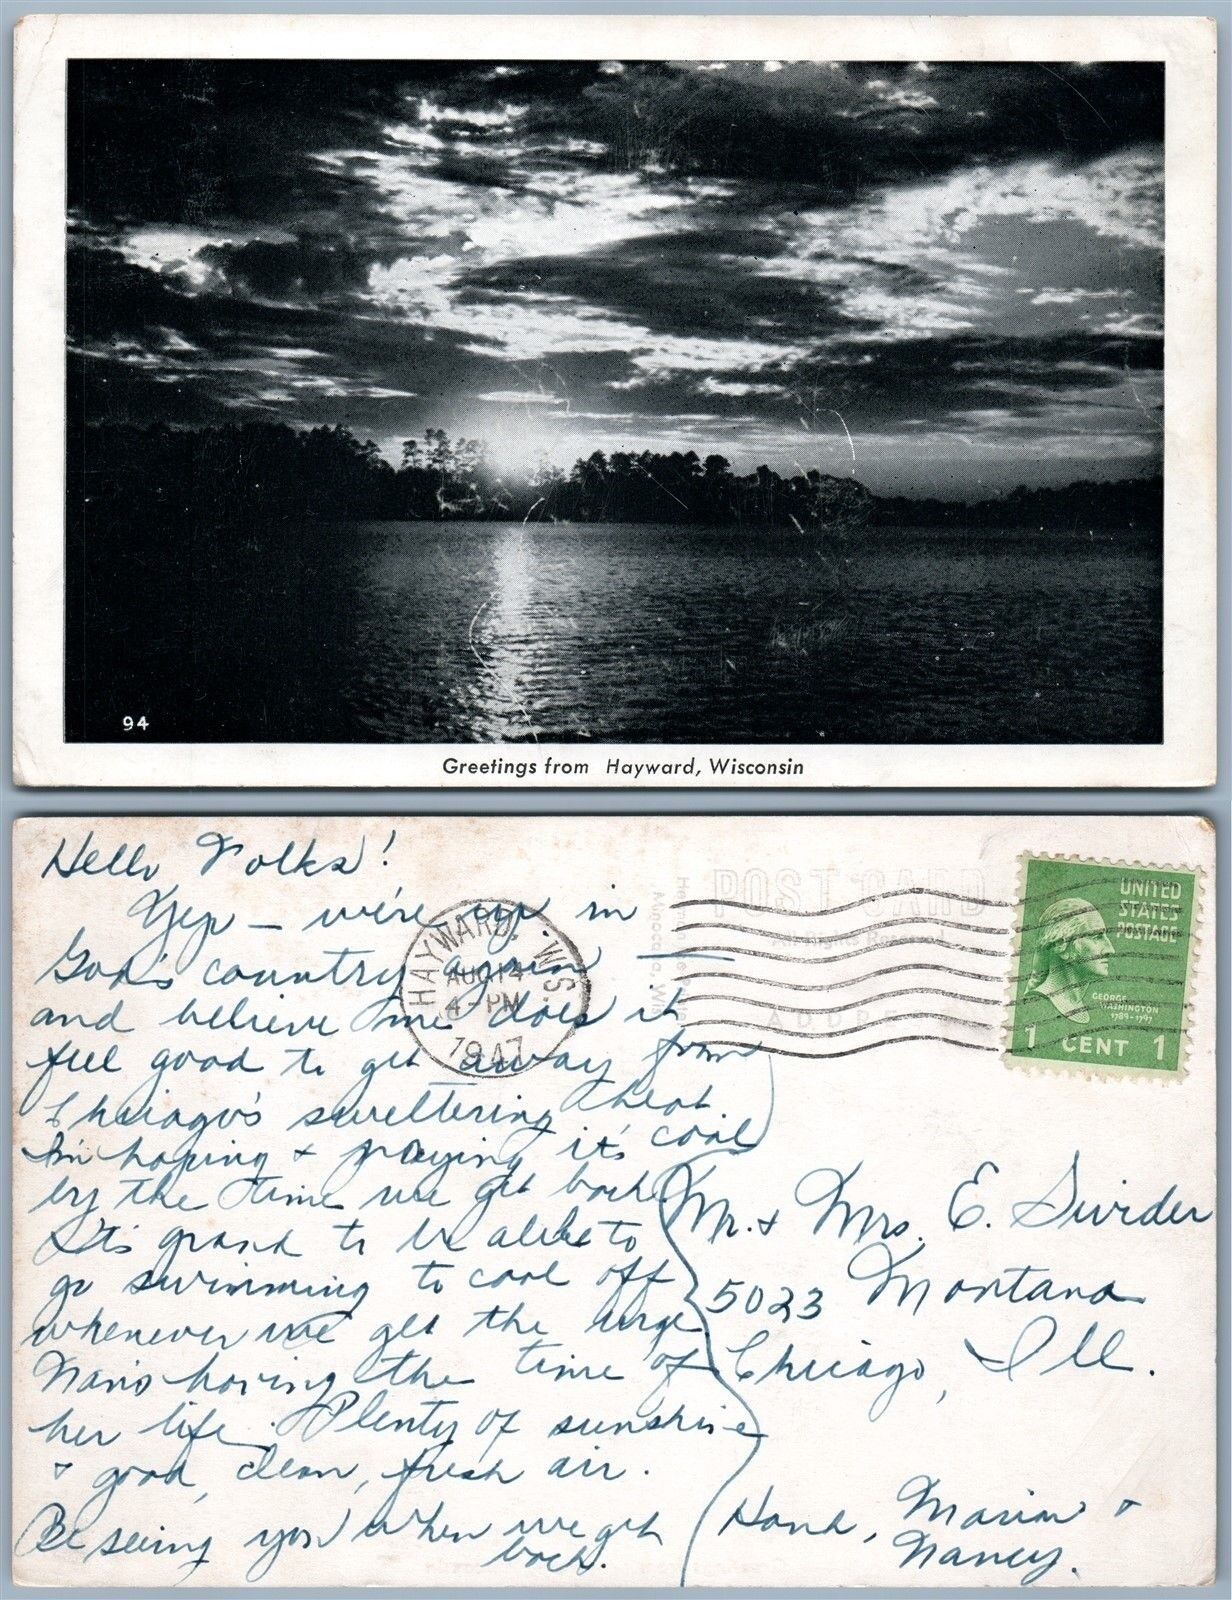 94
Greetings from Hayward, Wisconsin
Hello Folks!
Yep – we're up in
God's country again —
and believe me does it
feel good to get away from
Chicago's sweltering heat.
I'm hoping & praying it's cool
by the time we get back
It's grand to be able to
go swimming to cool off
whenever we get the urge.
Nan's having the time of
her life. Plenty of sunshine
& good, clean, fresh air.
Be seeing you when we get
back.
POST CARD
All Rights Reserved
ADDRE
HAYWARD, WIS.
AUG 14
4 - PM
1947
UNITED
STATES
POSTAGE
GEORGE
WASHINGTON
1789-1797
1 CENT 1
Mr. & Mrs. E.
5023 Montana
Chicago, Ill.
Marion &
Nancy.